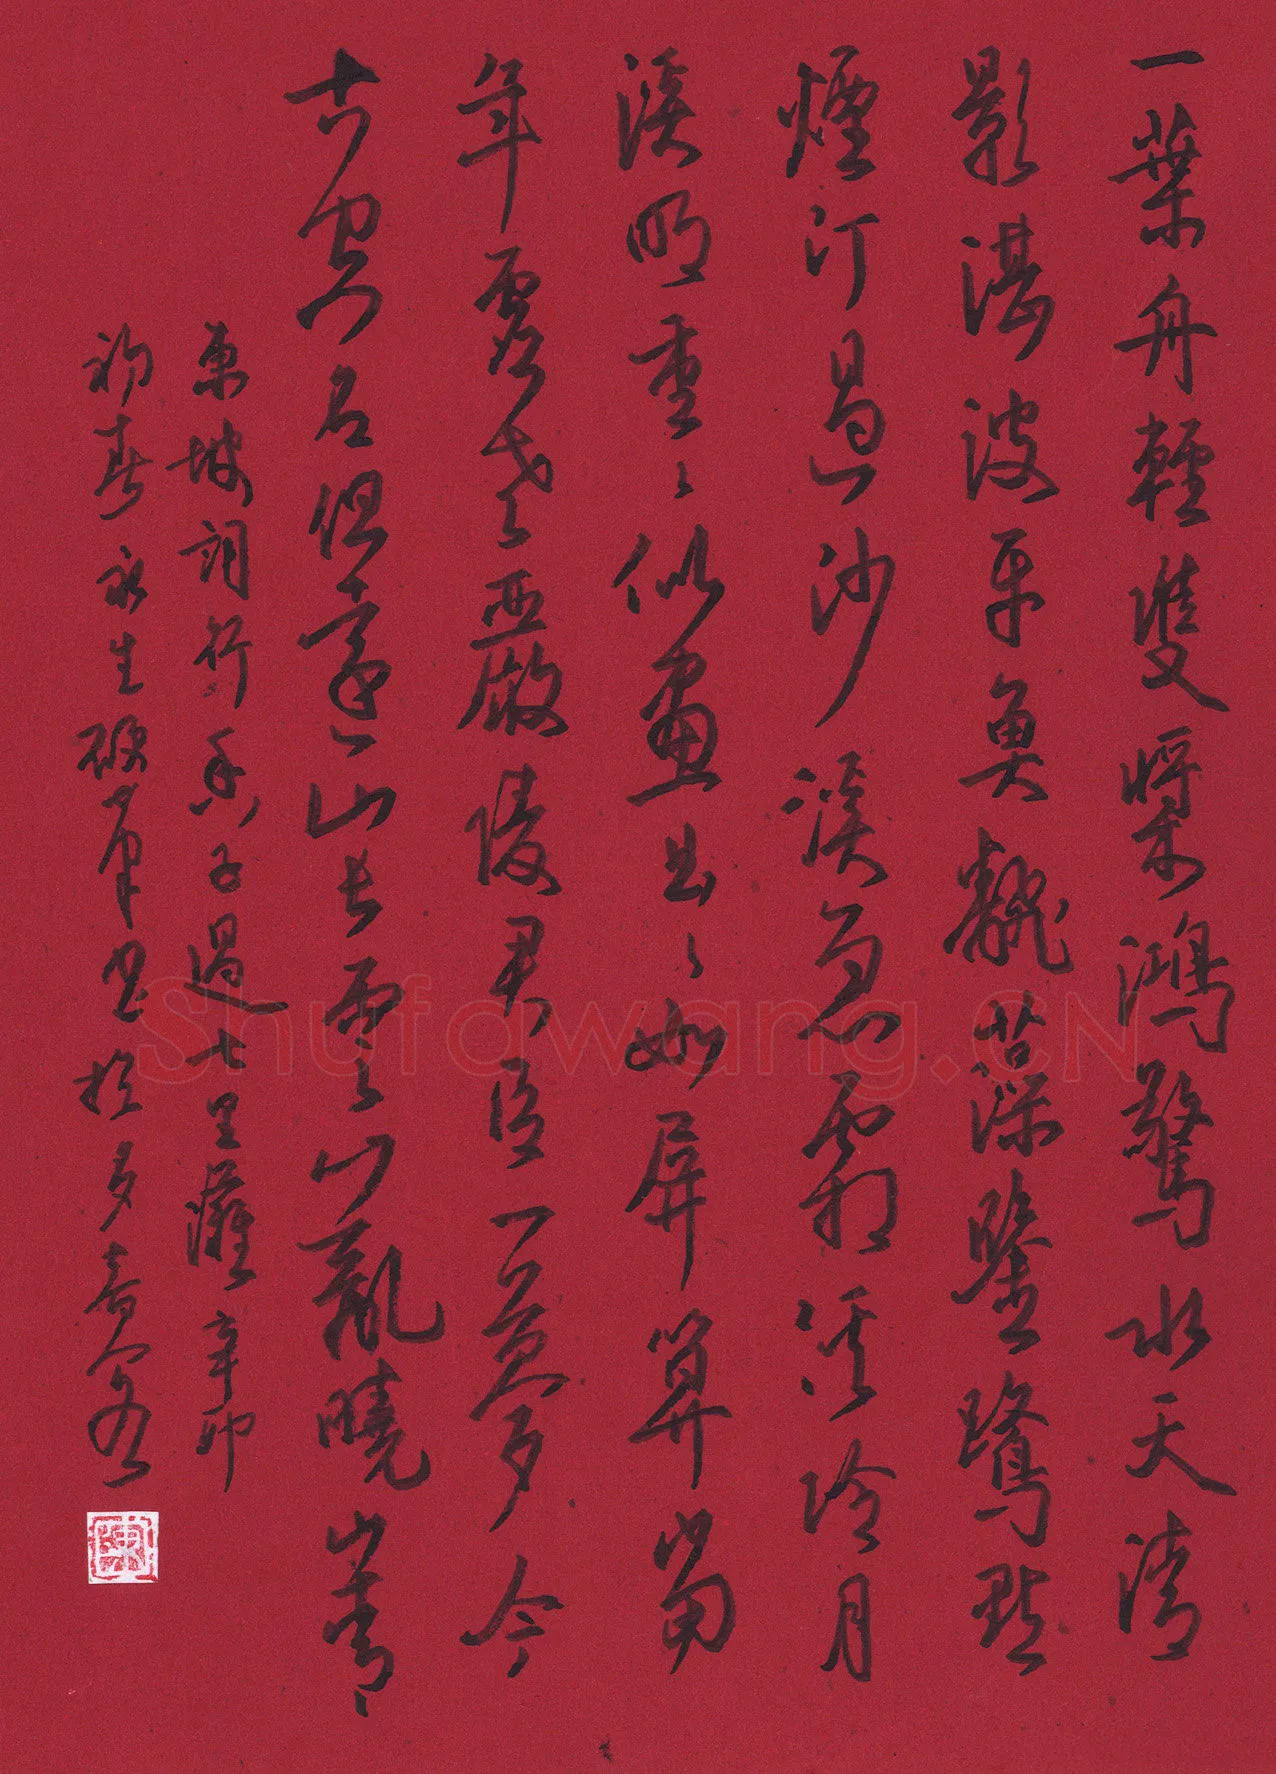 一葉舟輕雙槳鴻驚水天清
影湛波平魚翻藻鑒鷺點
煙汀過沙溪急霜溪冷月
溪明重〻似畫曲〻如屏算當
年虛老嚴陵君臣一夢今
古空名但遠山長雲山亂曉山青
東坡詞行香子過七里灘辛卯
初春永生硬筆書於多喜
陳
Shufawang.CN